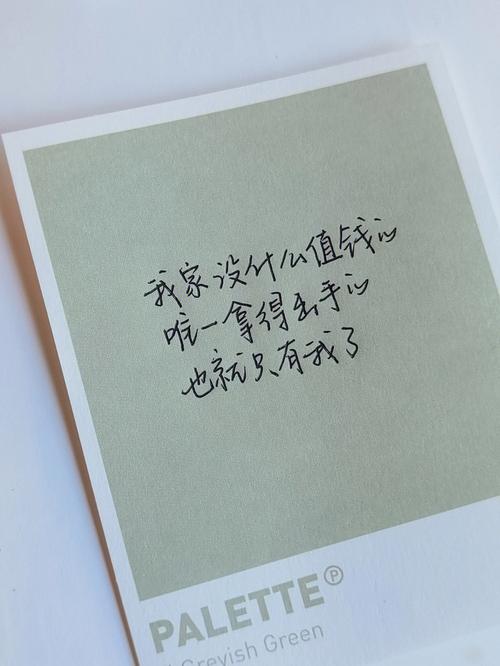 我家没什么值钱心
唯一拿得出手心
也就只有我了
PALETTE℗
Greyish Green